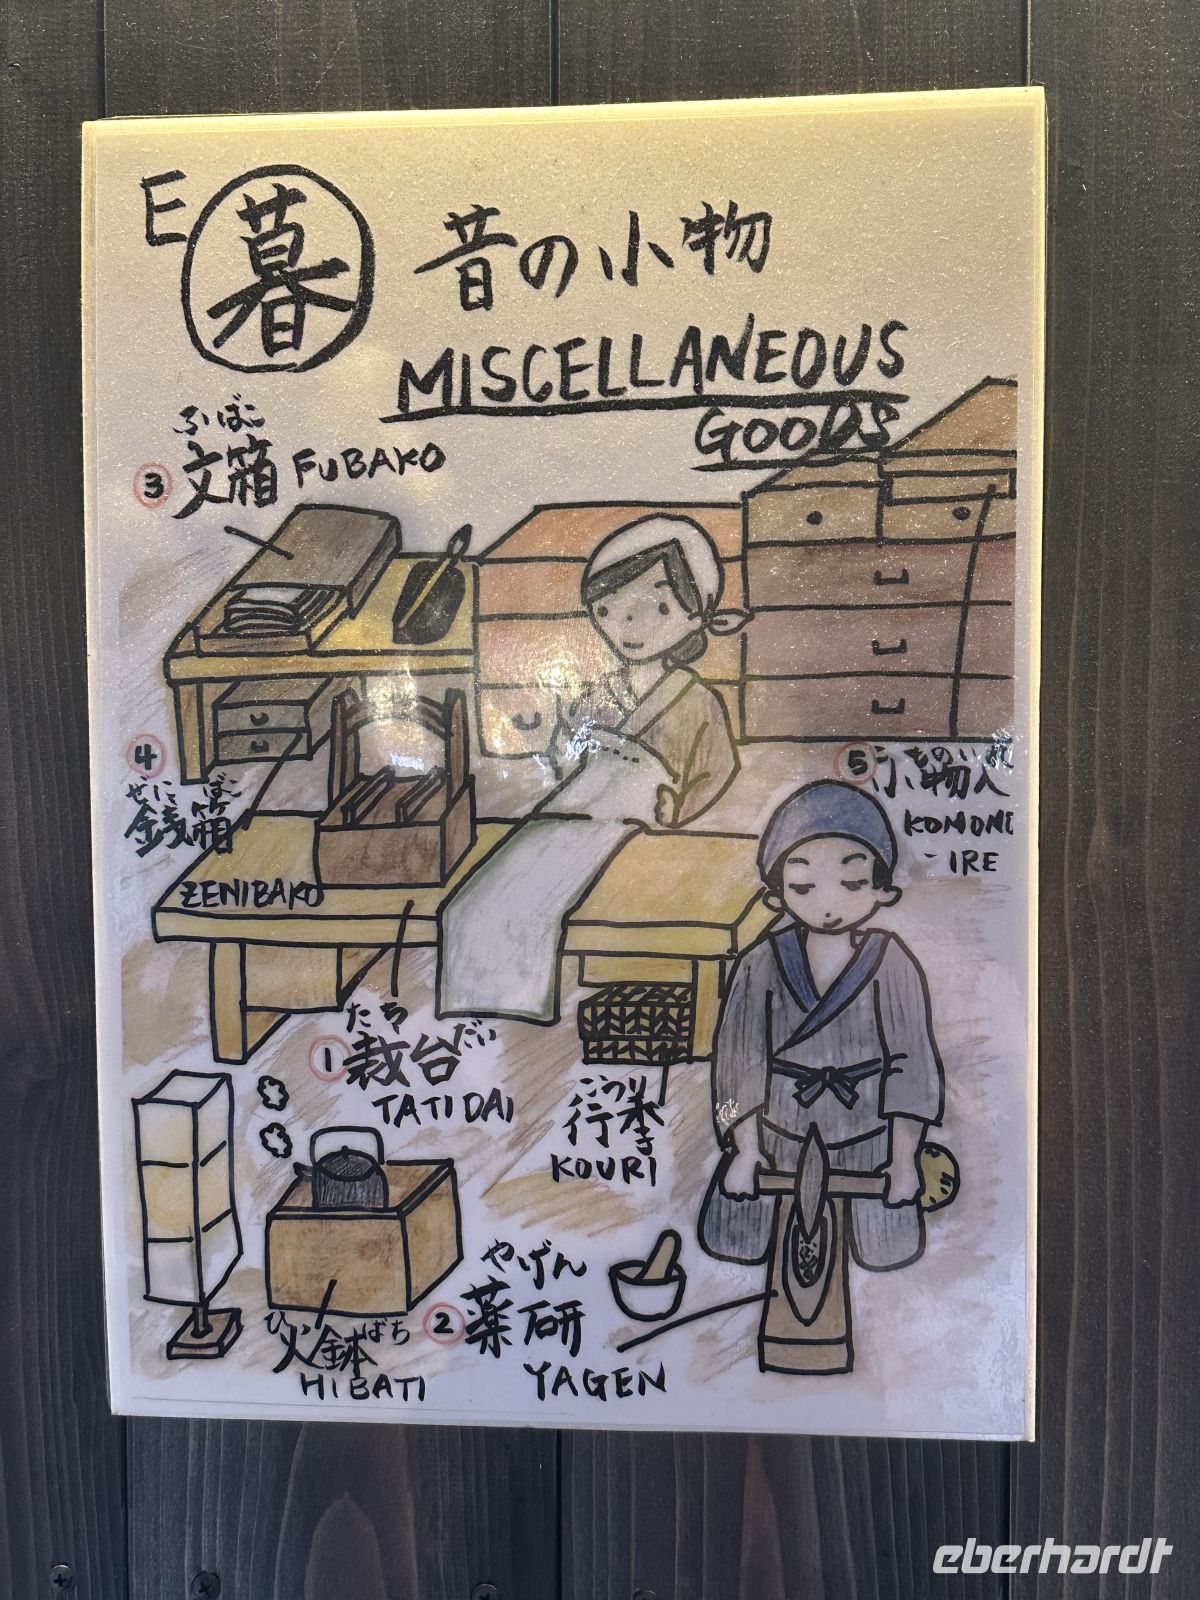 E 暮 昔の小物
MISCELLANEOUS
GOODS
ふばこ
③ 文箱 FUBAKO
④
ぜにばこ
銭箱
ZENIBAKO
⑤ こものいれ
小物入
KOMONO
-IRE
たちだい
① 裁台
TATIDAI
こうり
行李
KOURI
ひばち
火鉢
HIBATI
やげん
② 薬研
YAGEN
eberhardt